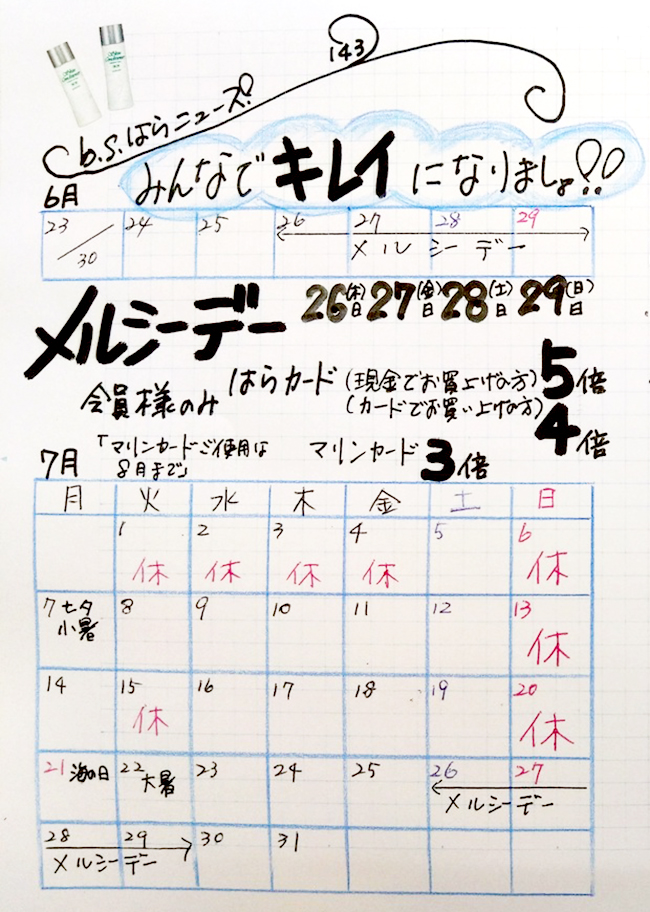 143
b.s.はらニュース!
みんなでキレイになりましょ!!
6月
23/30 24 25 26 27 28 29
メルシーデー
メルシーデー 26(木)日 27(金)日 28(土)日 29(日)日
会員様のみ はらカード (現金でお買上げの方) 5倍
(カードでお買い上げの方) 4倍
「マリンカードご使用は
8月まで」
マリンカード 3倍
7月
月 火 水 木 金 土 日
1 2 3 4 5 6
休 休 休 休 休
7 七夕 8 9 10 11 12 13
小暑 休
14 15 16 17 18 19 20
休 休
21 海の日 22 大暑 23 24 25 26 27
メルシーデー
28 29 30 31
メルシーデー